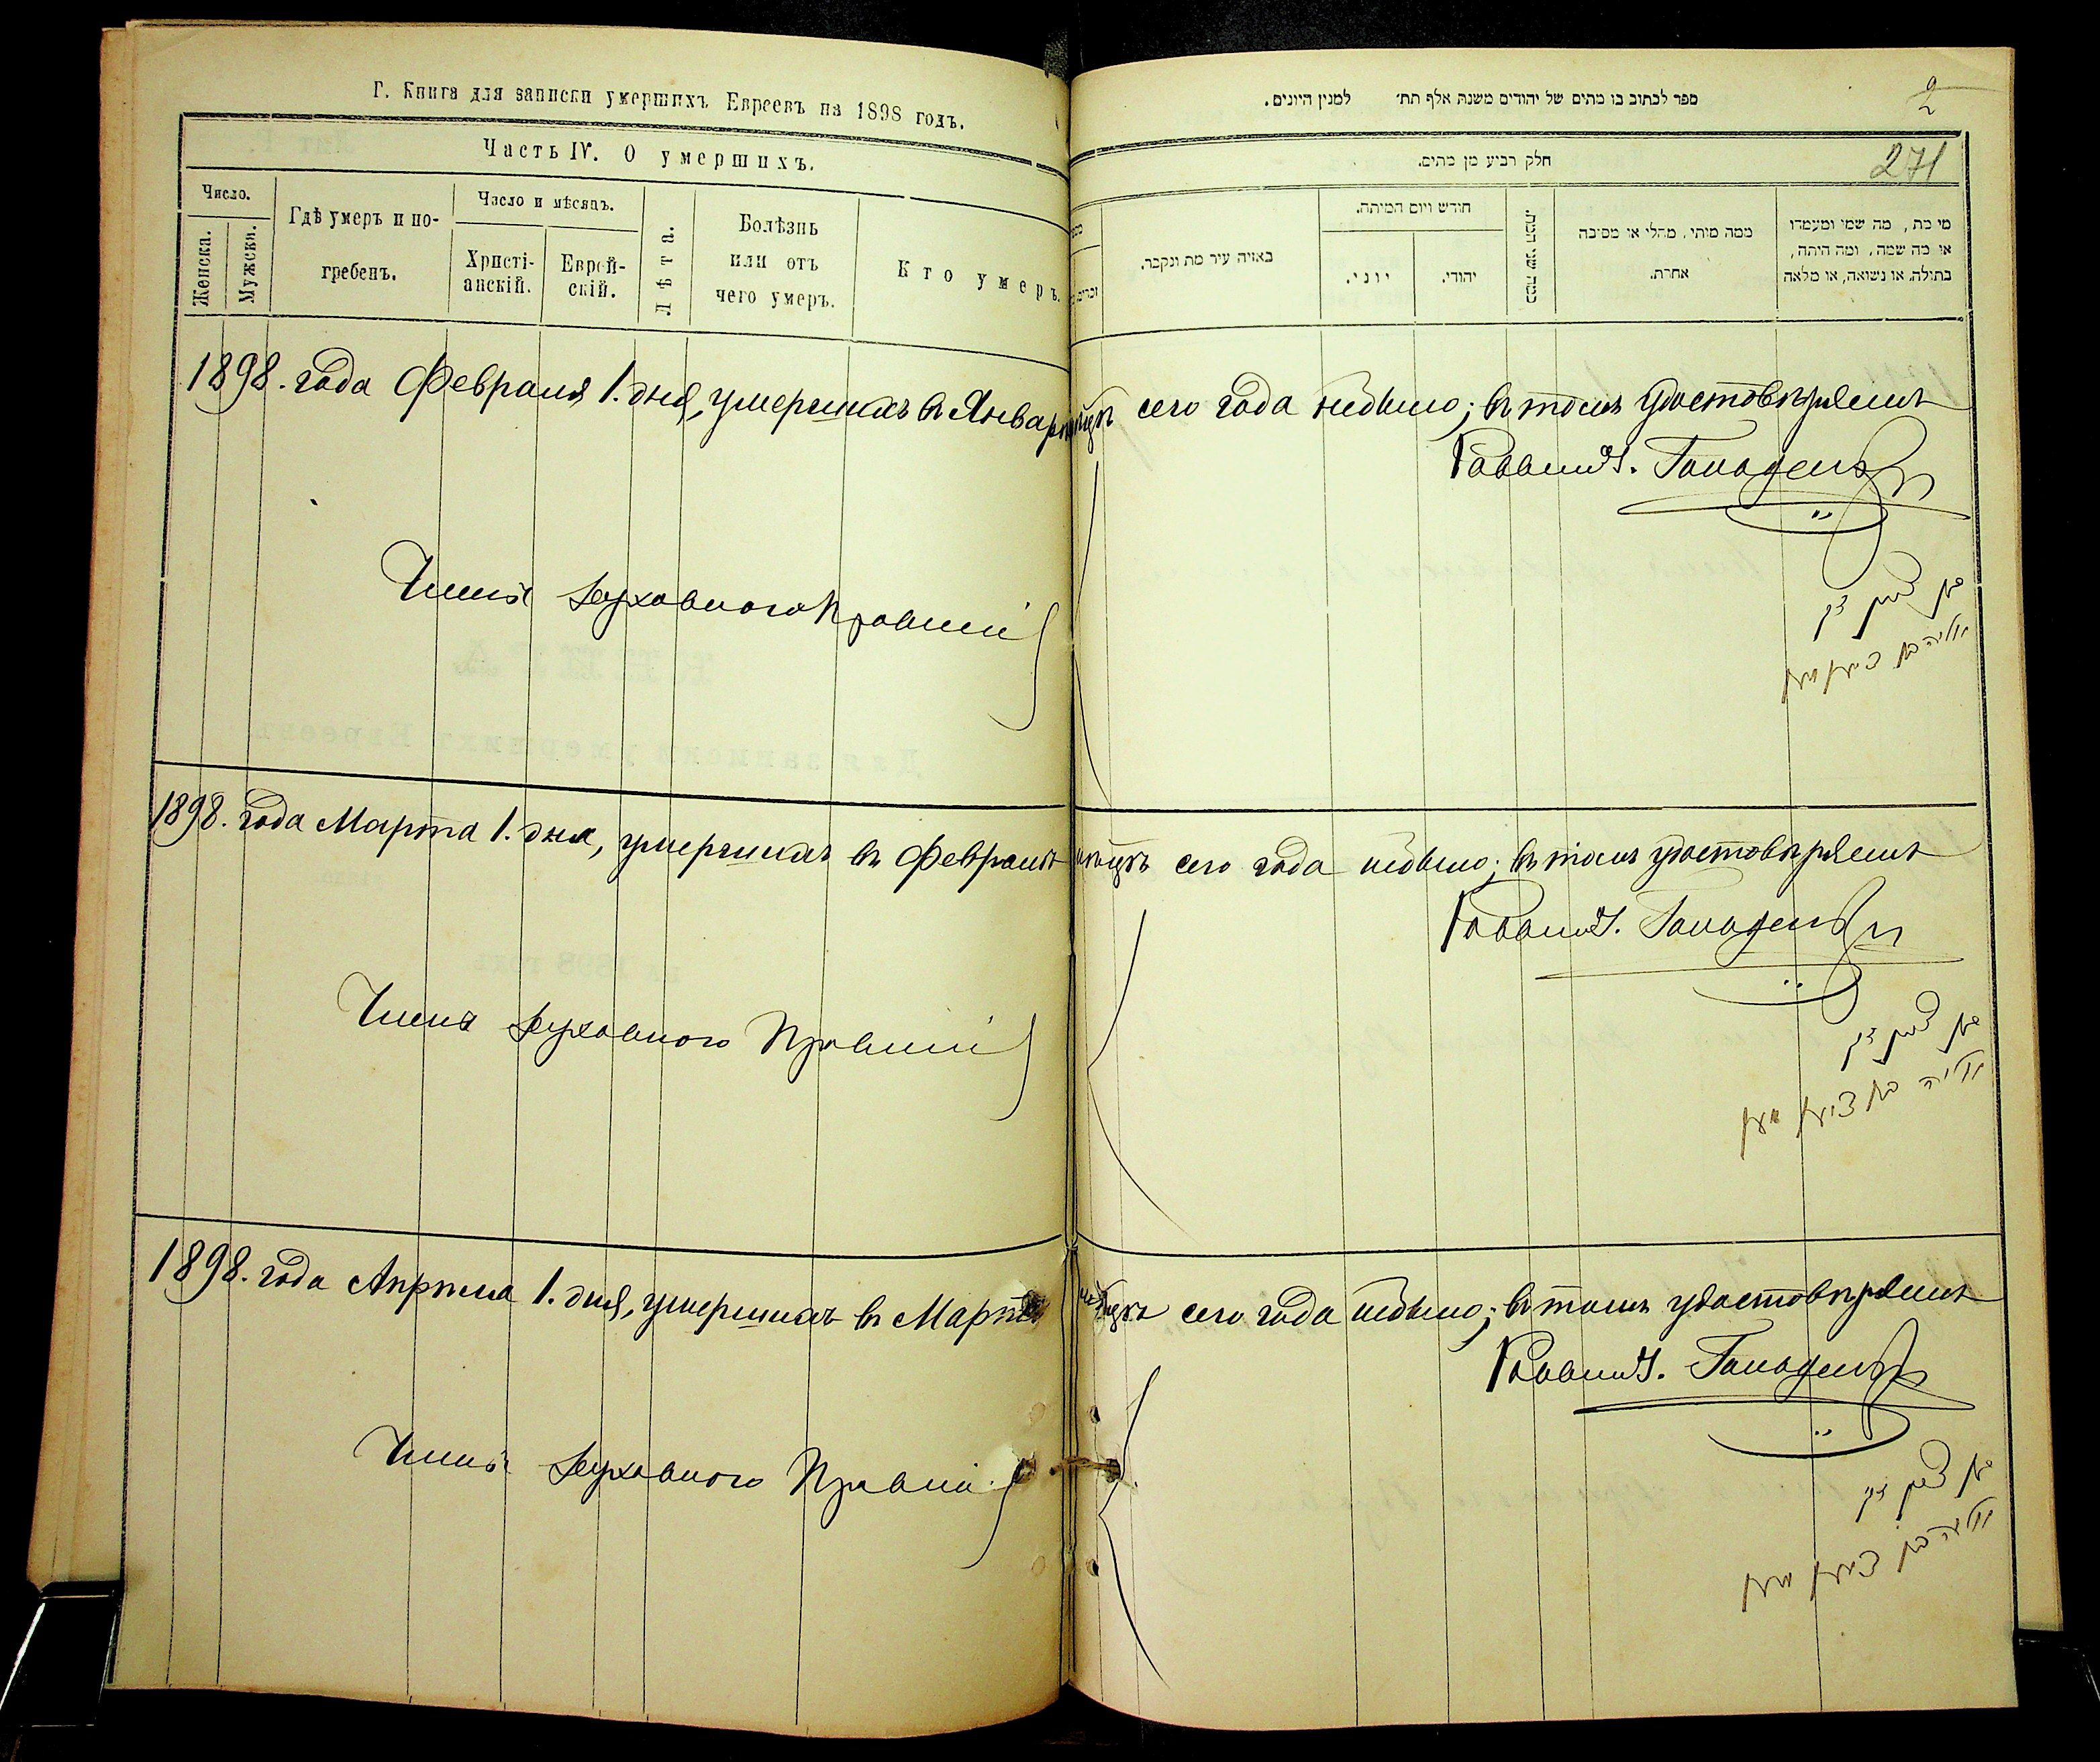 Г. Книга для записки умершихъ Евреевъ на 1898 годъ.
Часть IV. О умершихъ.
Число.
Женска.
Мужска.
Гдѣ умеръ и по-
гребенъ.
Число и мѣсяцъ.
Христі-
анскій.
Еврей-
скій.
Лѣта.
Болѣзнь
или отъ
чего умеръ.
Кто умеръ.
ספר לכתוב בו מתים של יהודים משנת אלף תת׳ למנין היונים.
2
271
חלק רביע מן מתים.
מי מת, מה שמו ומעמדו
או מה שמה, ומה היתה,
בתולה, או נשואה, או מלאה
ממה מיתי, מחלי או מסיבה
אחרת.
כמה שני המת.
חודש ויום המיתה.
יהודי.
יוני.
באיזה עיר מת ונקבר.
1898. года Февраля 1. дня, умершихъ въ Январѣ мѣсяцѣ сего года небыло; въ томъ удостовѣряемъ
Раввинъ
Члены Духовного Правленія
1898. года Марта 1. дня, умершихъ въ Февралѣ мѣсяцѣ сего года небыло; въ томъ удостовѣряемъ
Раввинъ
Члены Духовного Правленія
1898. года Апрѣля 1. дня, умершихъ въ Мартѣ мѣсяцѣ сего года небыло; въ томъ удостовѣряемъ
Раввинъ
Члены Духовного Правленія